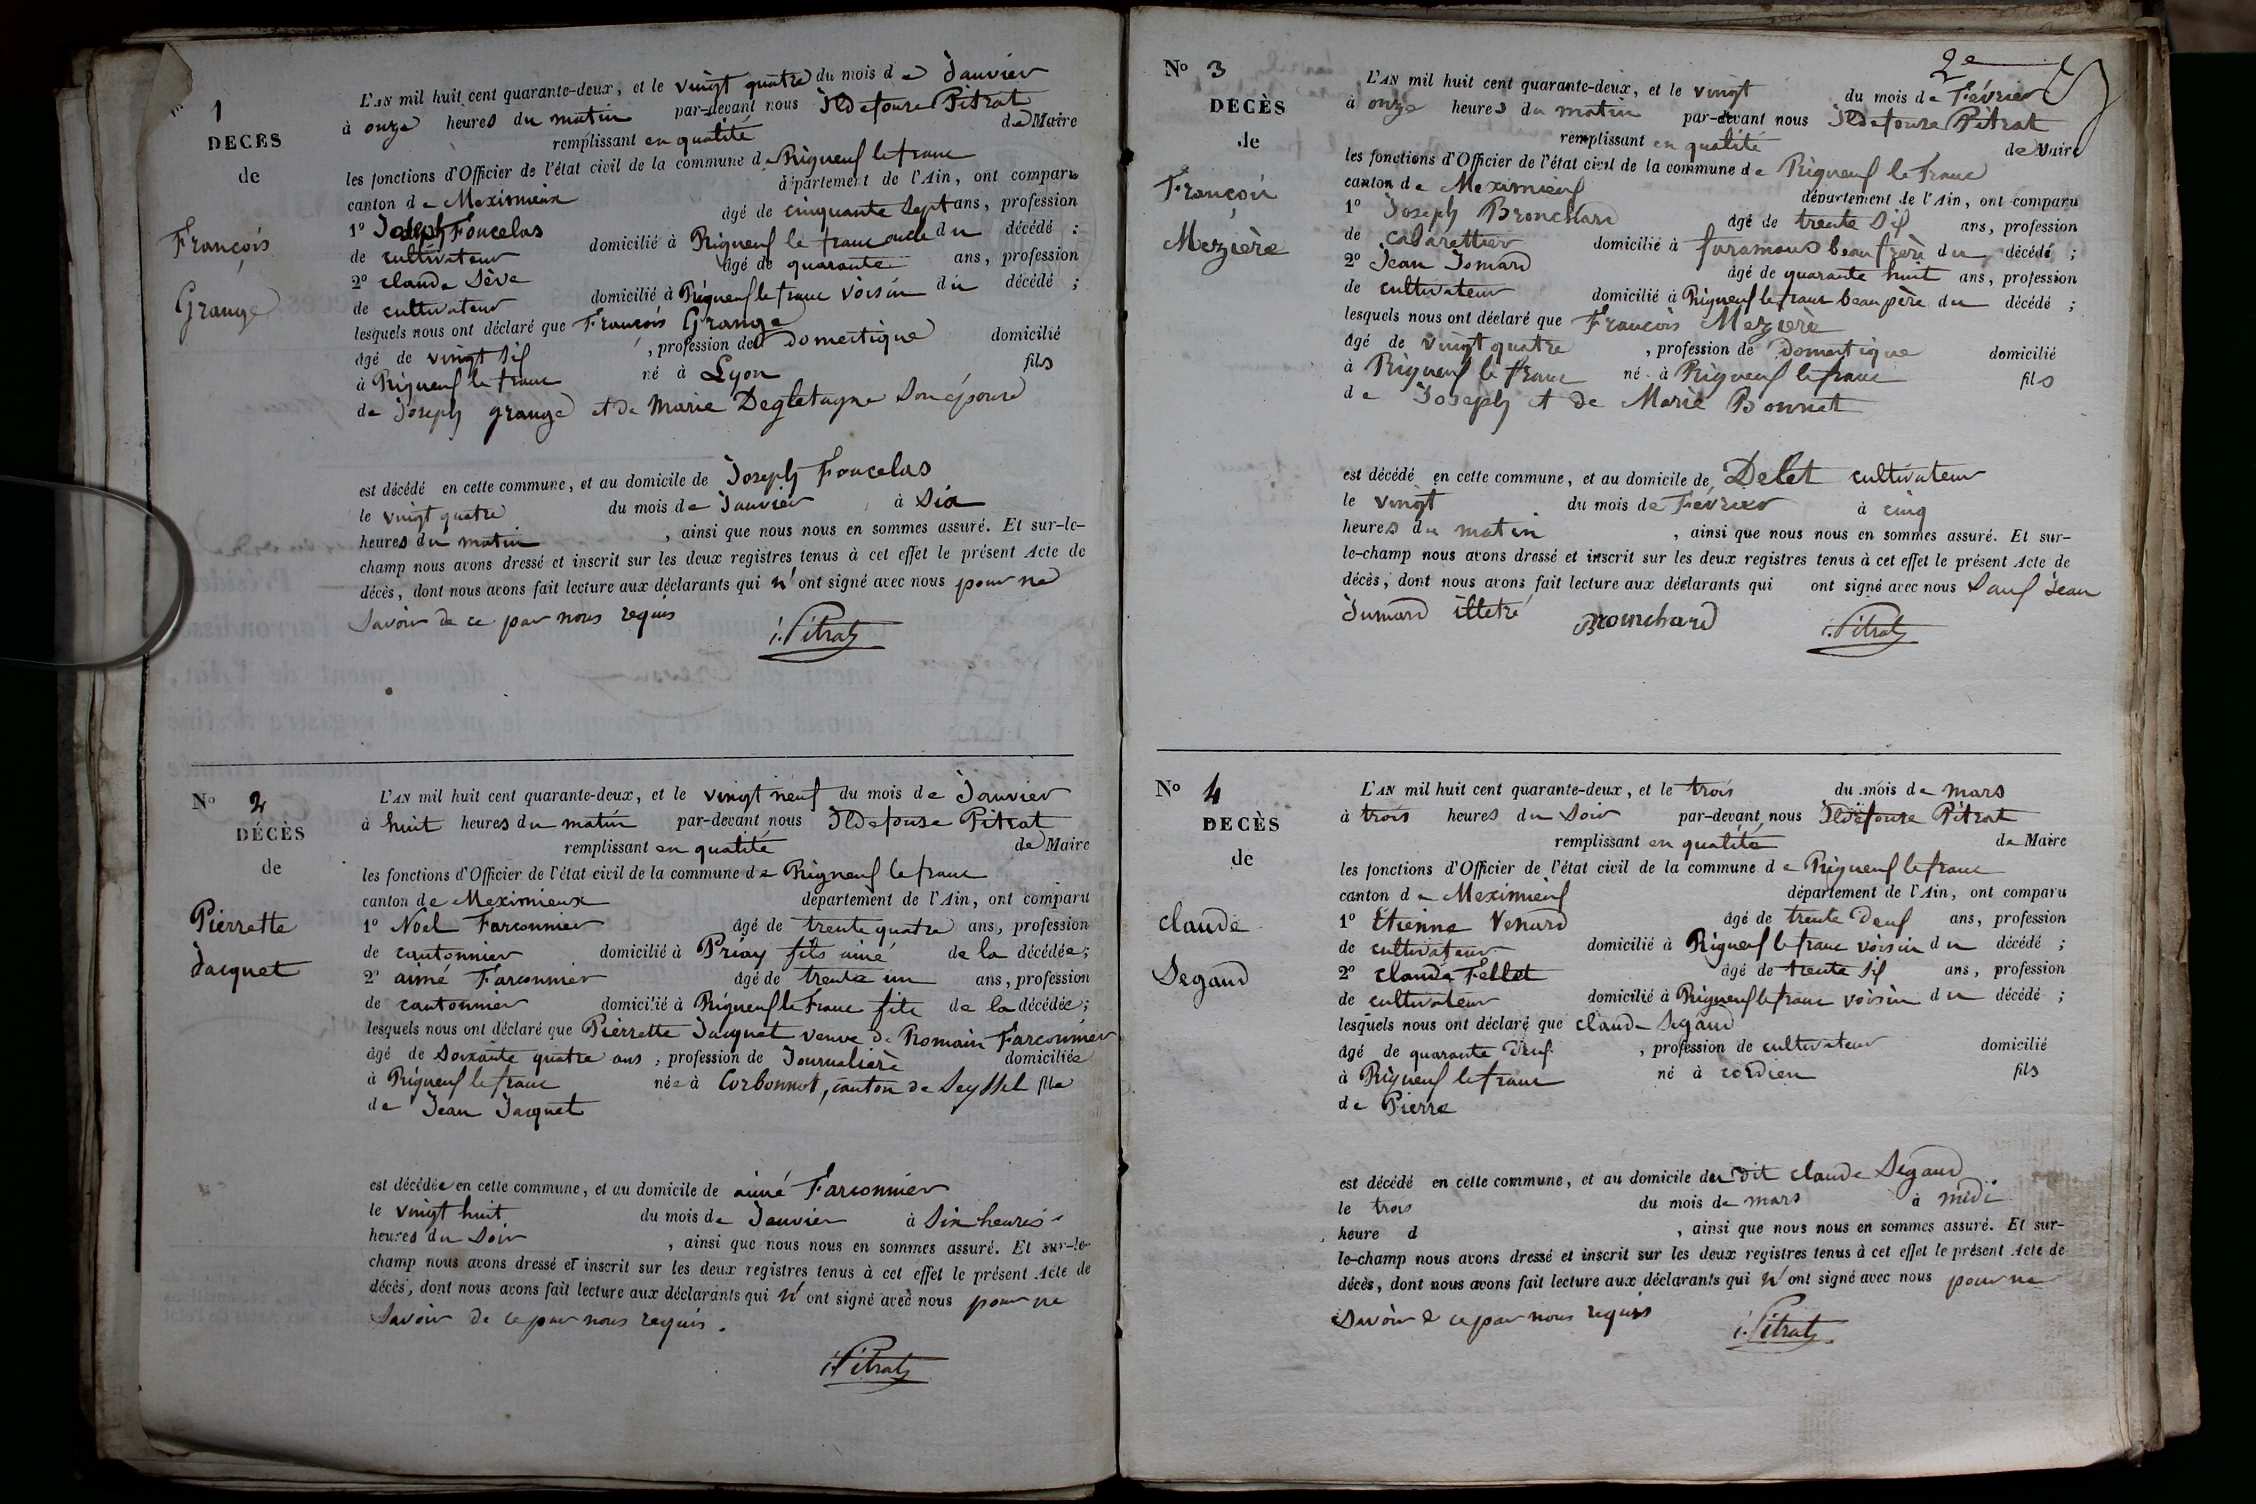 No 1
DECES
de
François
Grange
L'AN mil huit cent quarante-deux, et le vingt quatre du mois de Janvier
à onze heures du matin par-devant nous Ildefonse Pitrat
remplissant en qualité de Maire
les fonctions d'Officier de l'état civil de la commune de Rigneux le franc
canton de Meximieux département de l'Ain, ont comparu
1º Joseph Foucelas âgé de cinquante sept ans, profession
de cultivateur domicilié à Rigneux le franc oncle du décédé ;
2º claude Sève âgé de quarante ans, profession
de cultivateur domicilié à Rigneux le franc voisin du décédé ;
lesquels nous ont déclaré que François Grange
âgé de vingt six , profession de domestique domicilié
à Rigneux le franc né à Lyon fils
de Joseph grange et de Marie Degletagne son épouse
est décédé en cette commune, et au domicile de Joseph Foucelas
le vingt quatre du mois de Janvier à Six
heures du matin , ainsi que nous nous en sommes assuré. Et sur-le-
champ nous avons dressé et inscrit sur les deux registres tenus à cet effet le présent Acte de
décès, dont nous avons fait lecture aux déclarants qui n'ont signé avec nous pour ne
Savoir de ce par nous requis
i. Pitrat
No 2
DÉCÈS
de
Pierrette
Jacquet
L'AN mil huit cent quarante-deux, et le vingt neuf du mois de Janvier
à huit heures du matin par-devant nous Ildefonse Pitrat
remplissant en qualité de Maire
les fonctions d'Officier de l'état civil de la commune de Rigneux le franc
canton de Meximieux département de l'Ain, ont comparu
1º Noel Farconnier âgé de trente quatre ans, profession
de cantonnier domicilié à Priay fils ainé de la décédée ;
2º aimé Farconnier âgé de trente un ans, profession
de cantonnier domicilié à Rigneux le Franc fils de la décédée ;
lesquels nous ont déclaré que Pierrette Jacquet veuve de Romain Farconnier
âgé de Soixante quatre ans , profession de Journalière domiciliée
à Rigneux le franc née à Corbonnot, canton de Seyssel fille
de Jean Jacquet
est décédée en cette commune, et au domicile de aimé Farconnier
le vingt huit du mois de Janvier à Six heures
heures du Soir , ainsi que nous nous en sommes assuré. Et sur-le-
champ nous avons dressé et inscrit sur les deux registres tenus à cet effet le présent Acte de
décès, dont nous avons fait lecture aux déclarants qui n'ont signé avec nous pour ne
Savoir de ce par nous requis.
i. Pitrat
2e
No 3
DECÈS
de
François
Mezière
L'AN mil huit cent quarante-deux, et le vingt du mois de Février
à onze heures du matin par-devant nous Ildefonse Pitrat
remplissant en qualité de Maire
les fonctions d'Officier de l'état civil de la commune de Rigneux le Franc
canton de Meximieux département de l'Ain, ont comparu
1º Joseph Bronchard âgé de trente six ans, profession
de cabarettier domicilié à faramans beaufrère du décédé ;
2º Jean Jomard âgé de quarante huit ans, profession
de cultivateur domicilié à Rigneux le franc beau père du décédé ;
lesquels nous ont déclaré que François Mezière
âgé de vingt quatre , profession de domestique domicilié
à Rigneux le franc né à Rigneux le franc fils
de Joseph et de Marie Bonnet
est décédé en cette commune, et au domicile de Delet cultivateur
le vingt du mois de Février à cinq
heures du matin , ainsi que nous nous en sommes assuré. Et sur-
le-champ nous avons dressé et inscrit sur les deux registres tenus à cet effet le présent Acte de
décès, dont nous avons fait lecture aux déclarants qui ont signé avec nous Sauf Jean
Jumard illetré Bronchard i. Pitrat
No 4
DECÈS
de
claude
Segaud
L'AN mil huit cent quarante-deux, et le trois du mois de mars
à trois heures du Soir par-devant nous Ildefonse Pitrat
remplissant en qualité de Maire
les fonctions d'Officier de l'état civil de la commune de Rigneux le franc
canton de Meximieux département de l'Ain, ont comparu
1º Etienne Venard âgé de trente deux ans, profession
de cultivateur domicilié à Rigneux le franc voisin du décédé ;
2º claude Fellet âgé de trente six ans, profession
de cultivateur domicilié à Rigneux le franc voisin du décédé ;
lesquels nous ont déclaré que claude Segaud
âgé de quarante deux , profession de cultivateur domicilié
à Rigneux le franc né à cordieu fils
de Pierre
est décédé en cette commune, et au domicile du dit claude Segaud
le trois du mois de mars à midi
heure d , ainsi que nous nous en sommes assuré. Et sur-
le-champ nous avons dressé et inscrit sur les deux registres tenus à cet effet le présent Acte de
décès, dont nous avons fait lecture aux déclarants qui n'ont signé avec nous pour ne
Savoir de ce par nous requis i. Pitrat